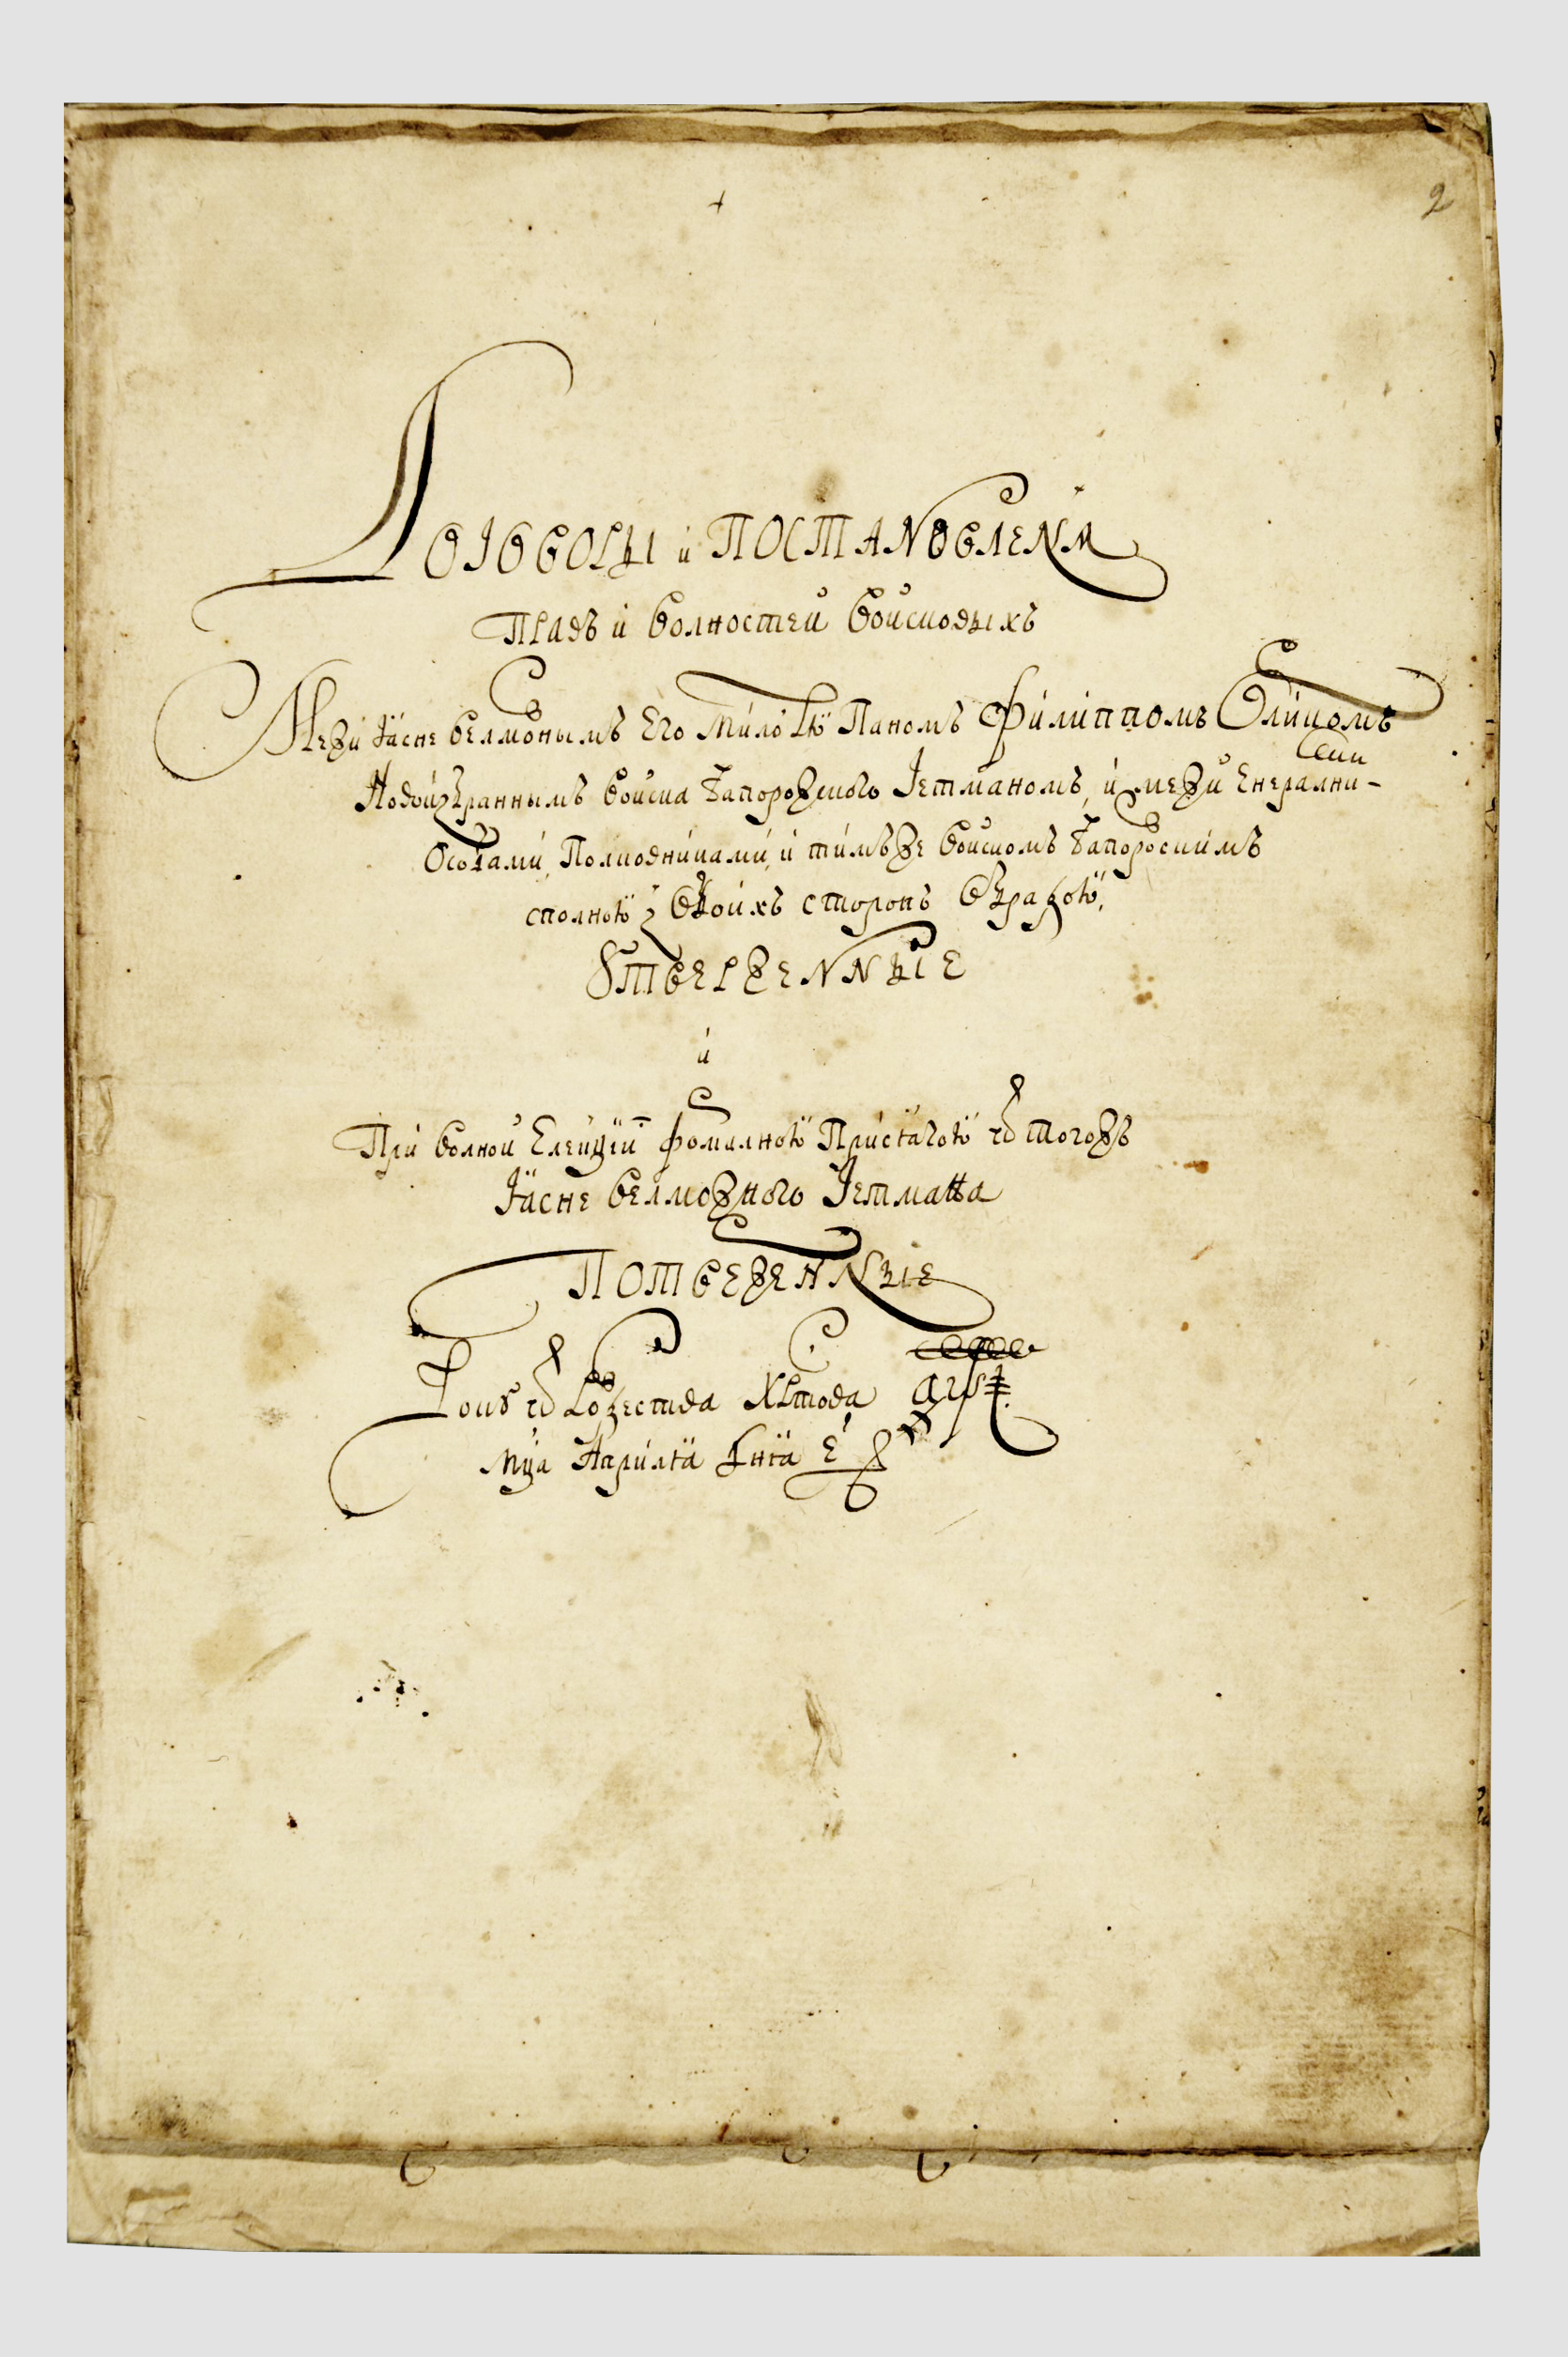 2
Договоры и Постановленя
Правъ и волностей войсковыхъ
Межи Ясне велможнымъ Его милостю Паномъ Филиппомъ Орликомъ
Новоизбраннымъ войска Запорожского Гетманомъ, и межи Енерални-
ми
Особами, Полковниками, и тимъже войскомъ Запорозскимъ
сполною з обоихъ сторонъ обрадою,
Утверженные
и
При волной Елекции формалною Присягою ѿ тогожъ
Ясне велможного Гетмана
Потверженные
Року ѿ Рожества Христова ҂аѱі
мца Априля дня е